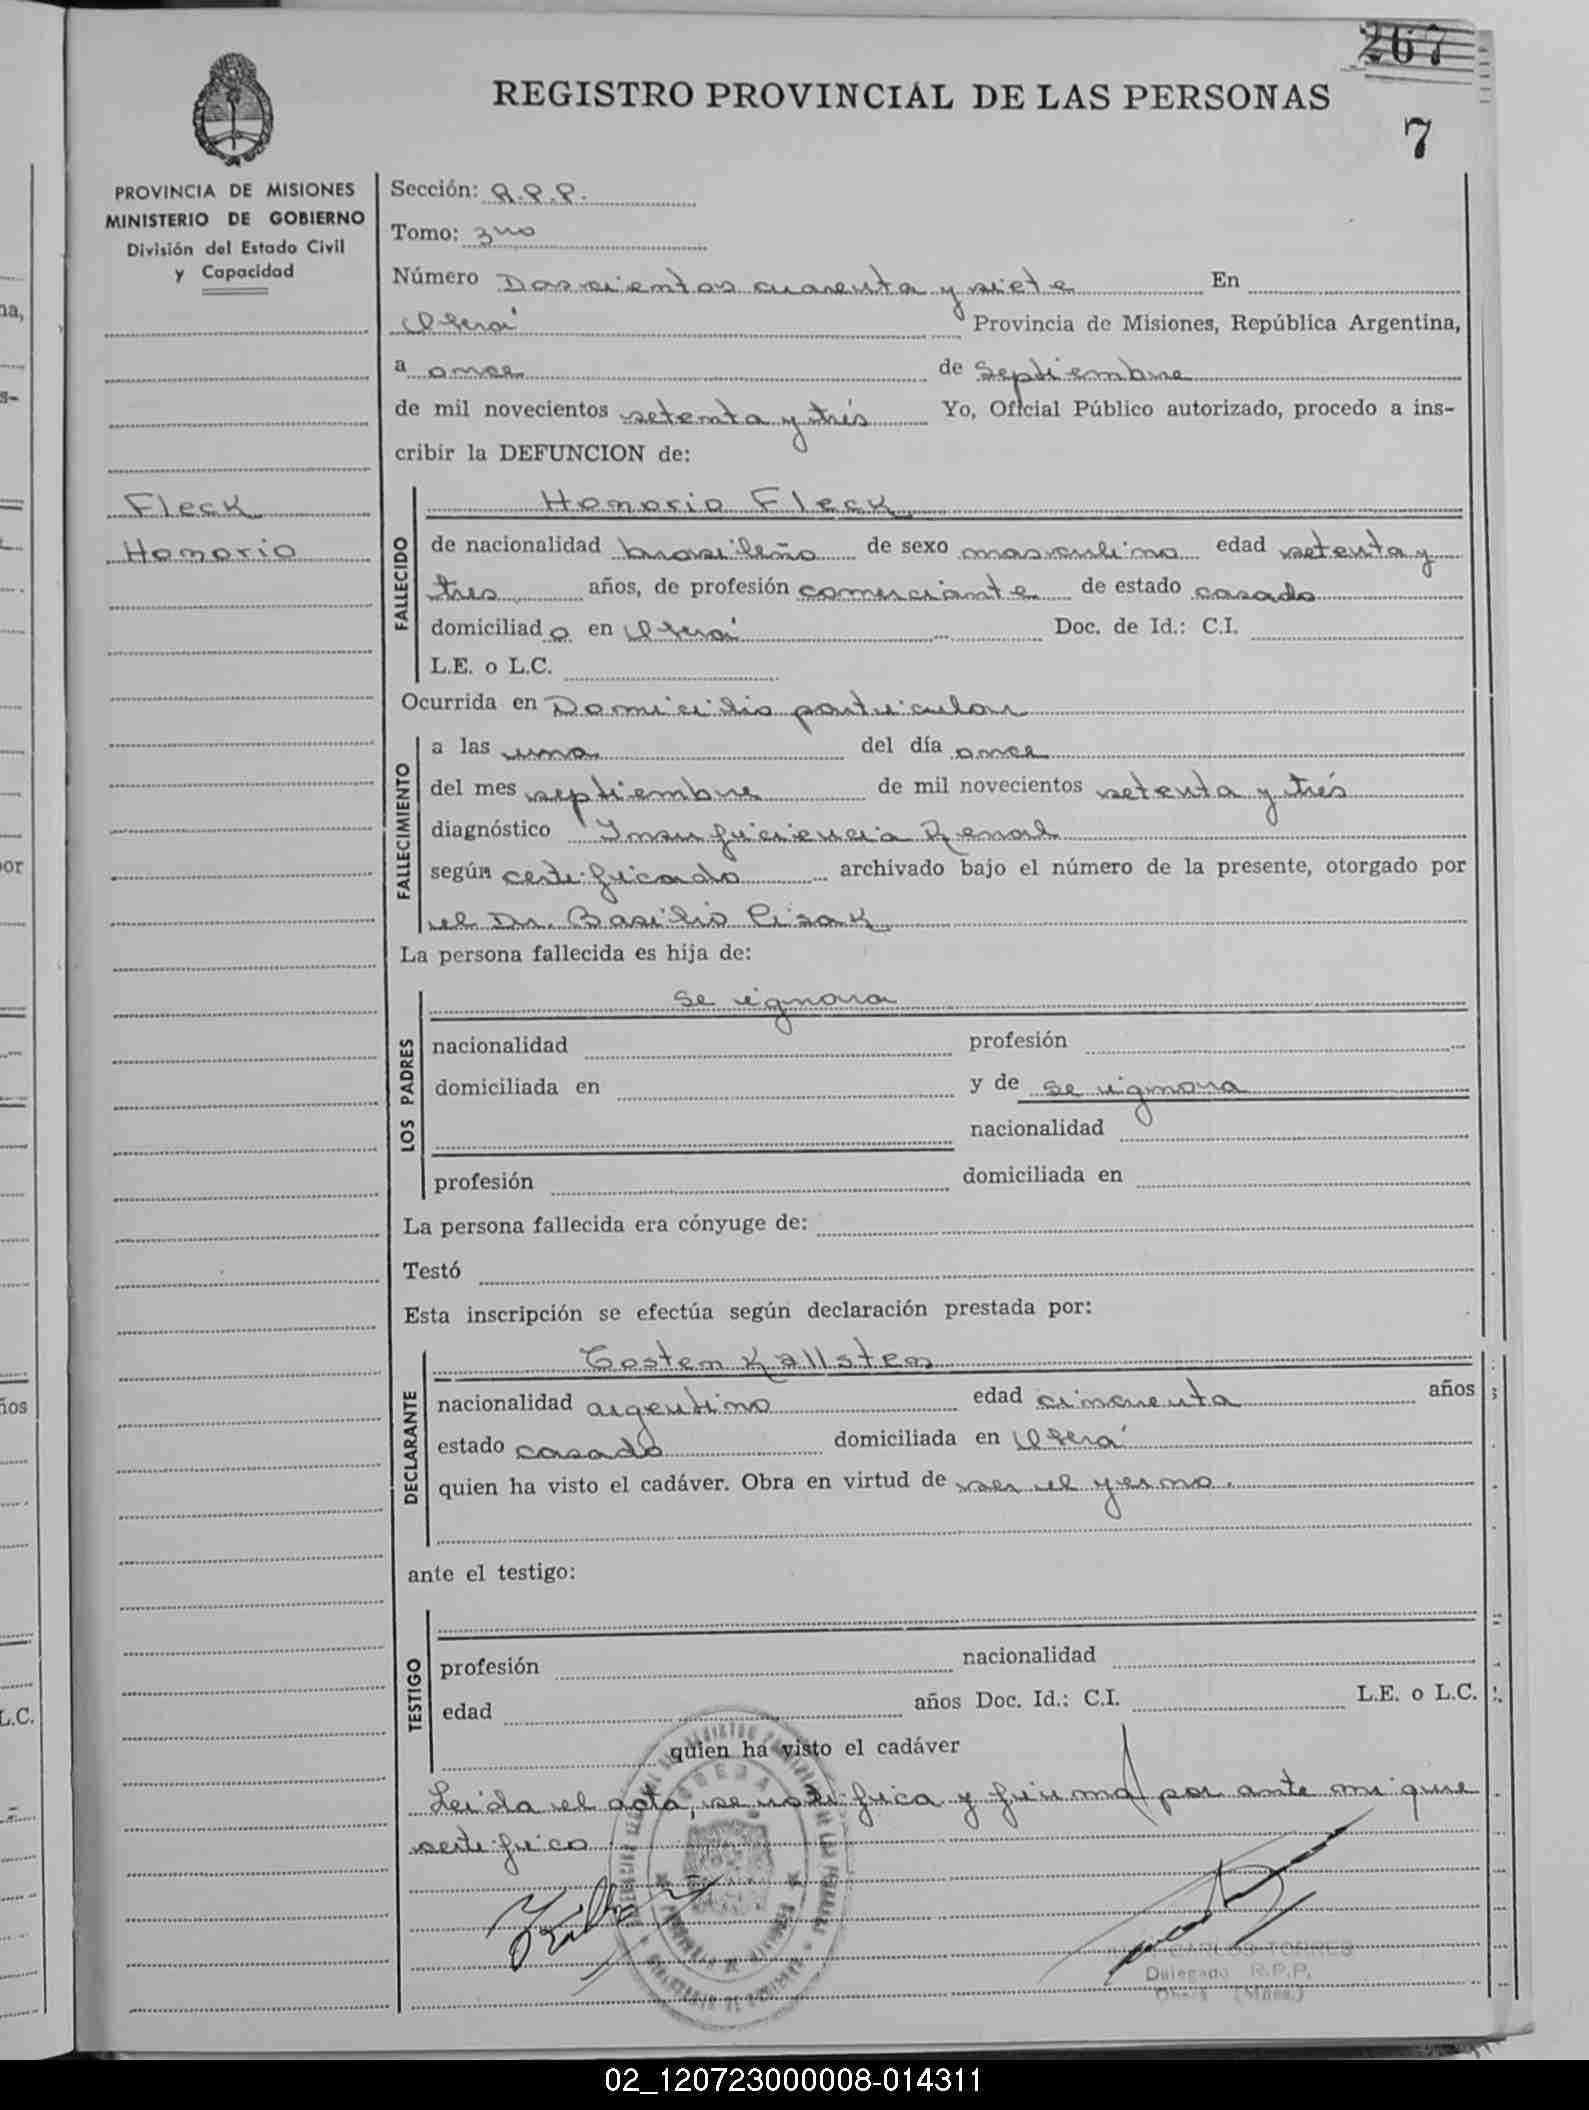 267
REGISTRO PROVINCIAL DE LAS PERSONAS
7
PROVINCIA DE MISIONES
MINISTERIO DE GOBIERNO
División del Estado Civil
y Capacidad
Fleck
Honorio
Sección: R.P.P.
Tomo: 3ro
Número Doscientos cuarenta y siete En
Oberá Provincia de Misiones, República Argentina,
a once de Septiembre
de mil novecientos setenta y trés Yo, Oficial Público autorizado, procedo a ins-
cribir la DEFUNCION de:
FALLECIDO
Honorio Fleck
de nacionalidad brasileño de sexo masculino edad setenta y
tres años, de profesión comerciante de estado casado
domiciliado en Oberá Doc. de Id.: C.I.
L.E. o L.C.
Ocurrida en Domicilio particular
FALLECIMIENTO
a las una del día once
del mes septiembre de mil novecientos setenta y trés
diagnóstico Insuficiencia Renal
según certificado archivado bajo el número de la presente, otorgado por
el Dr. Basilio Cisak
La persona fallecida es hija de:
LOS PADRES
se ignora
nacionalidad profesión
domiciliada en y de se ignora
nacionalidad
profesión domiciliada en
La persona fallecida era cónyuge de:
Testó
Esta inscripción se efectúa según declaración prestada por:
DECLARANTE
Kallsten
nacionalidad argentino edad cincuenta años
estado casado domiciliada en Oberá
quien ha visto el cadáver. Obra en virtud de ser el yerno.
ante el testigo:
TESTIGO
profesión nacionalidad
edad años Doc. Id.: C.I. L.E. o L.C.
quien ha visto el cadáver
Leida el acta, se ratifica y firma por ante mi que
certifico
OBERA
CARLOS TORRES
Delegado R.P.P.
Oberá (Mnes.)
02_120723000008-014311